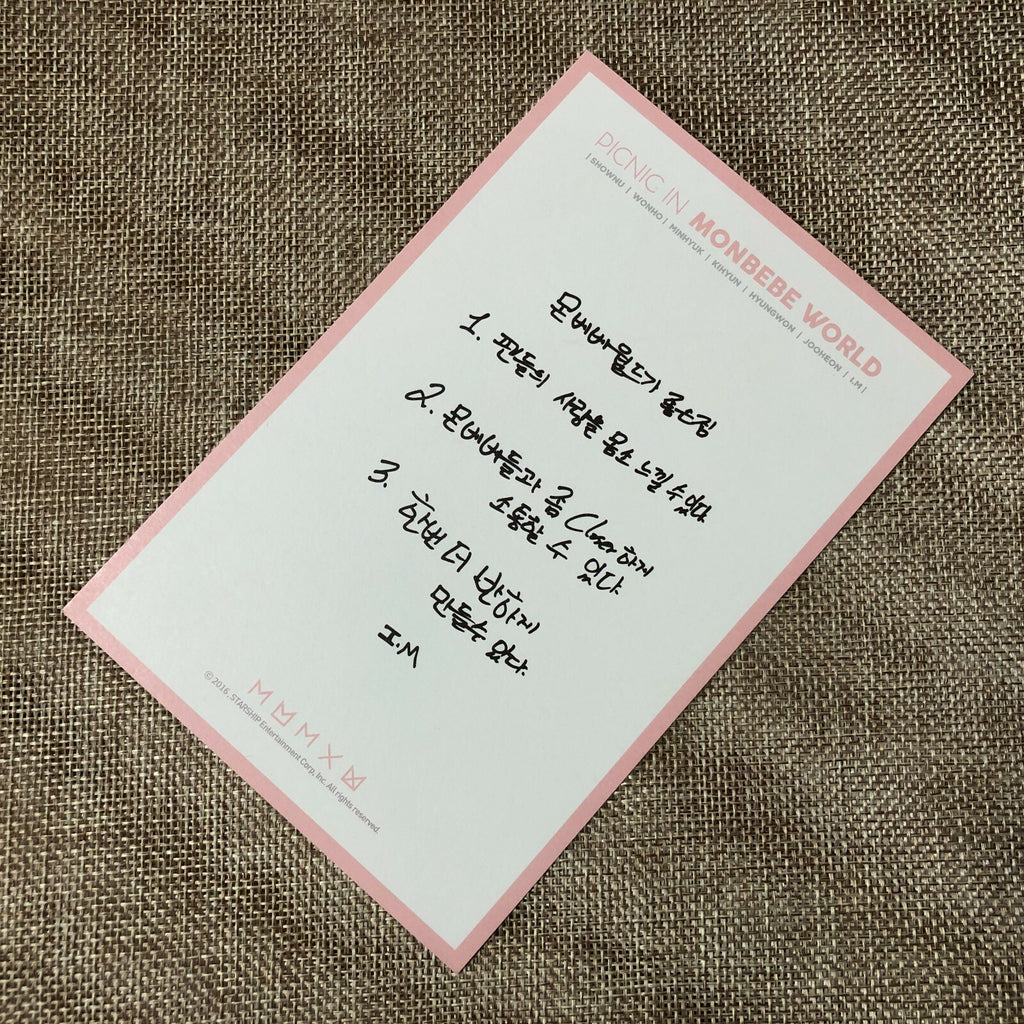 PICNIC IN MONBEBE WORLD
| SHOWNU | WONHO | MINHYUK | KIHYUN | HYUNGWON | JOOHEON | I.M |
몬베베월드가 좋은점
1. 팬들의 사랑을 몸소 느낄 수 있다
2. 몬베베들과 좀 Closer하게
소통할 수 있다
3. 한번 더 반하게
만들수 있다.
I.M
© 2016. STARSHIP Entertainment Corp, Inc. All rights reserved.